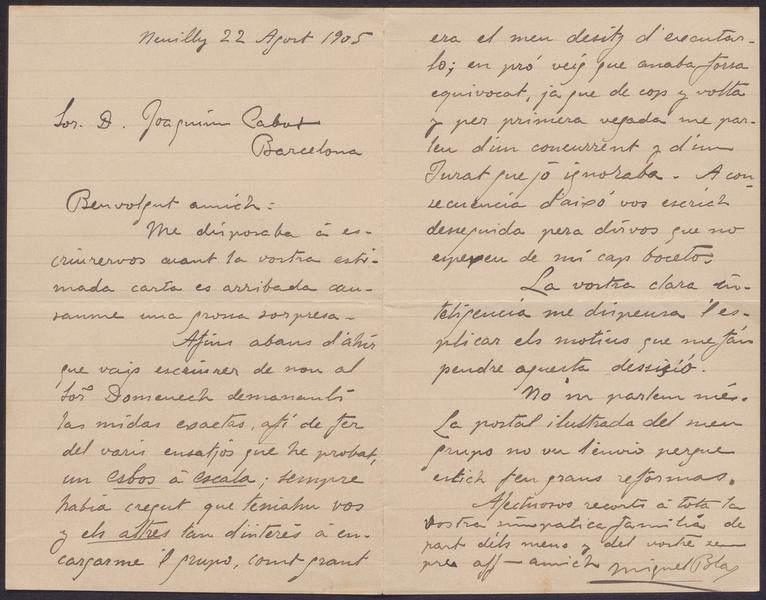 Neuilly 22 Agost 1905
Sor. D. Joaquim Cabot
Barcelona
Benvolgut amich:
Me disposaba á es-
criurervos cuant la vostra esti-
mada carta es arribada cau-
sanme una grossa sorpresa-
Afins abans d'ahir
que vaig escriurer de nou al
Sor Domenech demananli
las midas exactas, afi de fer
del varis ensatjos que he probat,
un esbos á escala; sempre
habia cregut que teniahu vos
y els altres tan d'interés á en-
cargarme 'l grupo, comt grant
era el meu desitj d'executar-
lo; en pró veig que anaba forsa
equivocat, ja que de cop y volta
y per primera vegada me par-
leu d'un concurrent y d'un
Jurat que jo ignoraba. A con-
secuencia d'aixó vos escrich
desseguida pera dirvos que no
espereu de mi cap boceto.
La vostra clara in-
teligencia me dispensa l'es-
plicar els motius que me fán
pendre aquesta dessisió.
No 'n parlem més.
La postal ilustrada del meu
grupo no vu l'envio perque
estich fen grans reformas.
Afectuosos recorts á tota la
vostra simpatica familia de
part dels meus y del vostre sem-
pre aff- amich Miguel Blay